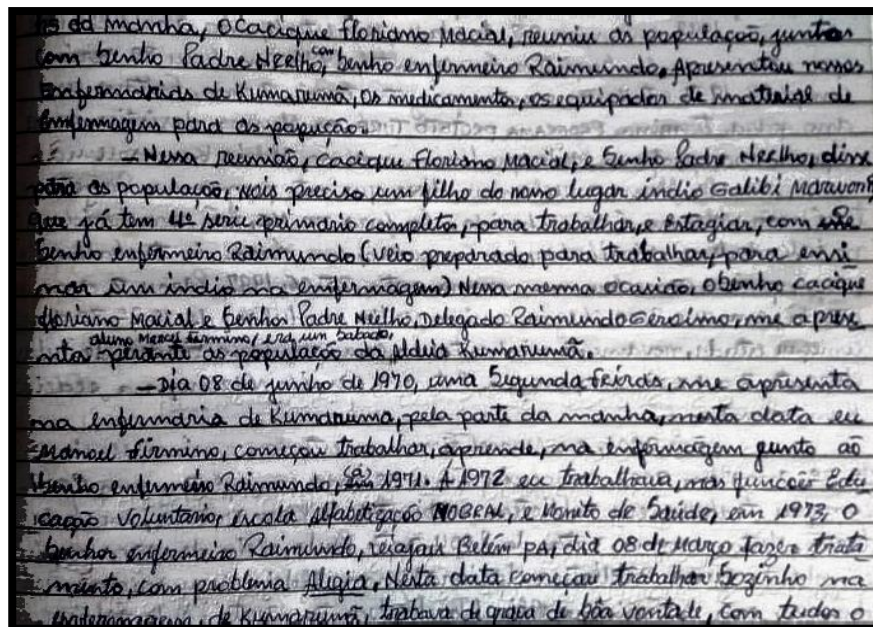 hs da manhã, O Cacique floriano Macial, reuniu as população, juntos
com senho Padre Neelho, com senho enfermeiro Raimundo, Apresentou nossos
Enfermarids de Kumarumã, Os medicamento, os equipador de material de
Enfermagem para as popução.
— Nessa reunião, Cacique floriano Macial, e Senho Padre Neelho, disse
para as população, Nois preciso um filho do nosso lugar índio Galibi Marworn,
que já tem 4ª serie primario completo, para trabalhar, e Estagiar, com
Senho enfermeiro Raimundo (veio preparado para trabalhar, para ensi
nar um índio na enfermagem) Nessa mesma ocasião, O Senho cacique
floriano Macial e Senhor Padre Neelho, Delegado Raimundo Geroimo, me aprese
aluno Manoel firmino, era um Sabado,
nta perante as população da Aldeia Kumarumã.
— Dia 08 de junho de 1970, uma Segunda feiras, me apresenta
na enfermaria de Kumaruma, pela parte da manha, nesta data eu
Manoel firmino, começou trabalhar, aprende, na enfermagem junto ao
senho enfermeiro Raimundo, (a) 1971. A 1972 eu trabalhava, nas funcões Edu
cação voluntario, escola Alfabetização MOBRAL, e Monito de Saúde, em 1973, O
Senhor enfermeiro Raimundo, Belém PA, dia 08 de Março fazer trata
mento, com problema Aligia, Nesta data começou trabalhar Sozinho na
enfermagem, de Kumarumã, trabava de graça de bôa vontade, com tudos o